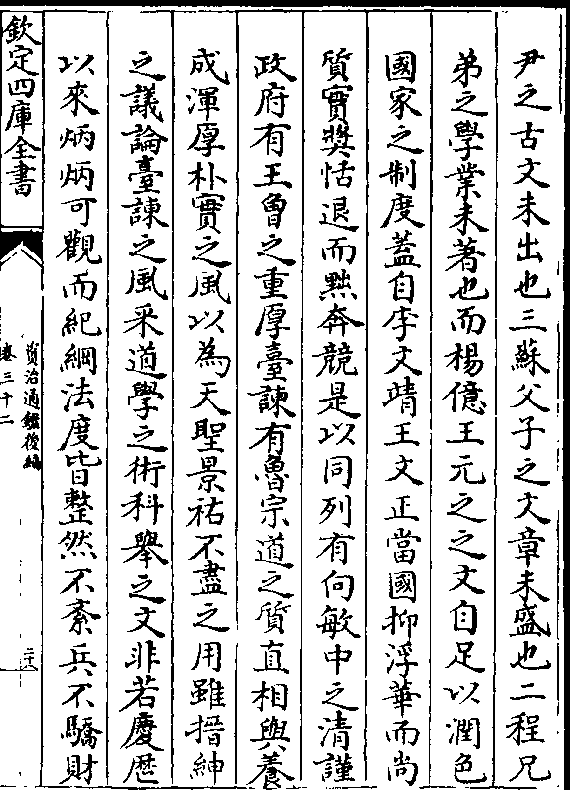 尹之古文未出也三蘇父子之文章未盛也二程兄
弟之學業未著也而楊億王元之之文自足以潤色
國家之制度蓋自李文靖王文正當國抑浮華而尚
質實獎恬退而黜奔競是以同列有向敏中之清謹
政府有王曾之重厚臺諫有魯宗道之質直相與養
成渾厚朴實之風以為天聖景祐不盡之用雖搢紳
之議論臺諫之風采道學之術科舉之文非若慶歴
以來炳炳可觀而紀綱法度皆整然不紊兵不驕財
欽定四庫全書
資治通鑑後編
卷三十二